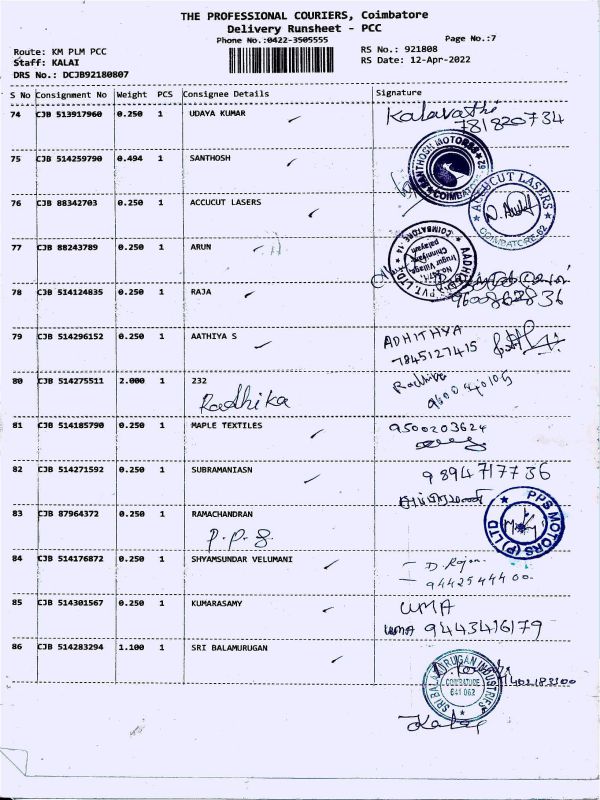 THE PROFESSIONAL COURIERS, Coimbatore
Delivery Runsheet - PCC
Phone No.:0422-3505555
Page No.:7
Route: KM PLM PCC
RS No.: 921808
Staff: KALAI
RS Date: 12-Apr-2022
DRS No.: DCJB92180807
S No Consignment No Weight PCS Consignee Details Signature
74 CJB 513917960 0.250 1 UDAYA KUMAR Kalavathi
781820734
75 CJB 514259790 0.494 1 SANTHOSH
SANTHOSH MOTORS COIMBATORE
76 CJB 88342703 0.250 1 ACCUCUT LASERS
ACCUCUT LASERS COIMBATORE-62
77 CJB 88243789 0.250 1 ARUN
COIMBATORE -14
Irugur Village,
Chinniyam
palayam
PVT. LTD
78 CJB 514124835 0.250 1 RAJA
79 CJB 514296152 0.250 1 AATHIYA S ADHITHYA
7845127415
80 CJB 514275511 2.000 1 232 Radhika
Radhika
81 CJB 514185790 0.250 1 MAPLE TEXTILES 9500203624
82 CJB 514271592 0.250 1 SUBRAMANIASN 9894717736
83 CJB 87964372 0.250 1 RAMACHANDRAN
P.P.S.
PPS MOTORS (P) LTD
84 CJB 514176872 0.250 1 SHYAMSUNDAR VELUMANI D. Rajan
9442544400
85 CJB 514301567 0.250 1 KUMARASAMY UMA
UMA 9443416179
86 CJB 514283294 1.100 1 SRI BALAMURUGAN
SRI BALAMURUGAN INDUSTRIES
COIMBATORE
641 062
Kalai